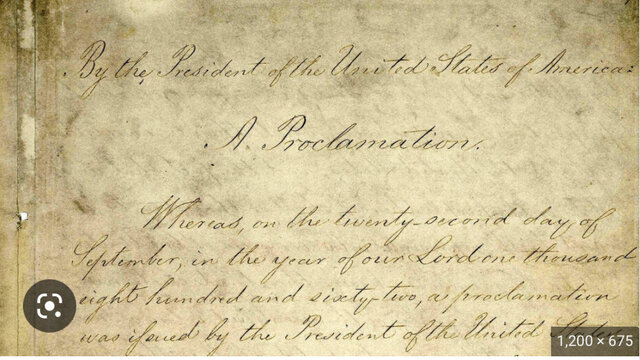 By the President of the United States of America:
A Proclamation.
Whereas, on the twenty-second day of
September, in the year of our Lord one thousand
eight hundred and sixty-two, a proclamation
was issued by the President of the United States
1,200 × 675